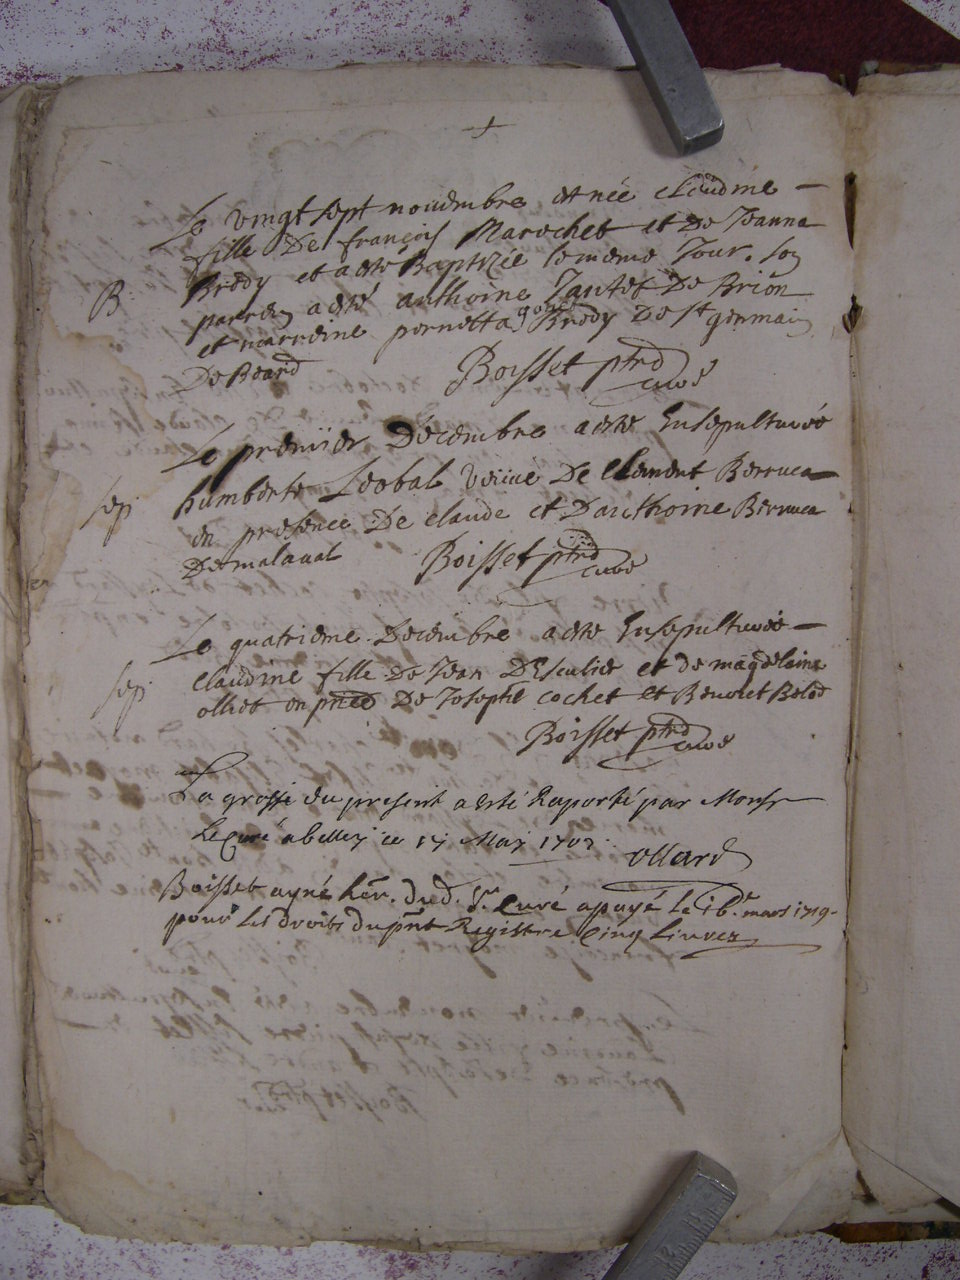 Le vingt sept novembre est née claudine
fille De françois Marechet et De Jeanne
B
Bredy et a este Baptizée le meme Jour. son
parrein a esté anthoine Jantet De Brion
et marreine pernette Bredy De st germain
De Beard
Boisset ptre
curé
Le premiier Décembre a este Ensepulturée
sep
humberte Leobal veüve De Clement Berruca
en presence De claude et Danthoine Berruca
De malaval
Boisset ptre
curé
Le quatrieme Décembre a este Ensepulturée
sep
claudine fille De Jean et de magdelaine
olliet en pnce De Joseph cochet et Benoict
Boisset ptre
curé
La grosse du present a esté Raporté par Monsr
Le Curé a belley ce 17 May 1702
ollard
Boisset ayné her. dud. Sr. Curé a payé le 16e mars 1719
pour les droits du pnt Registre Cinq Livres